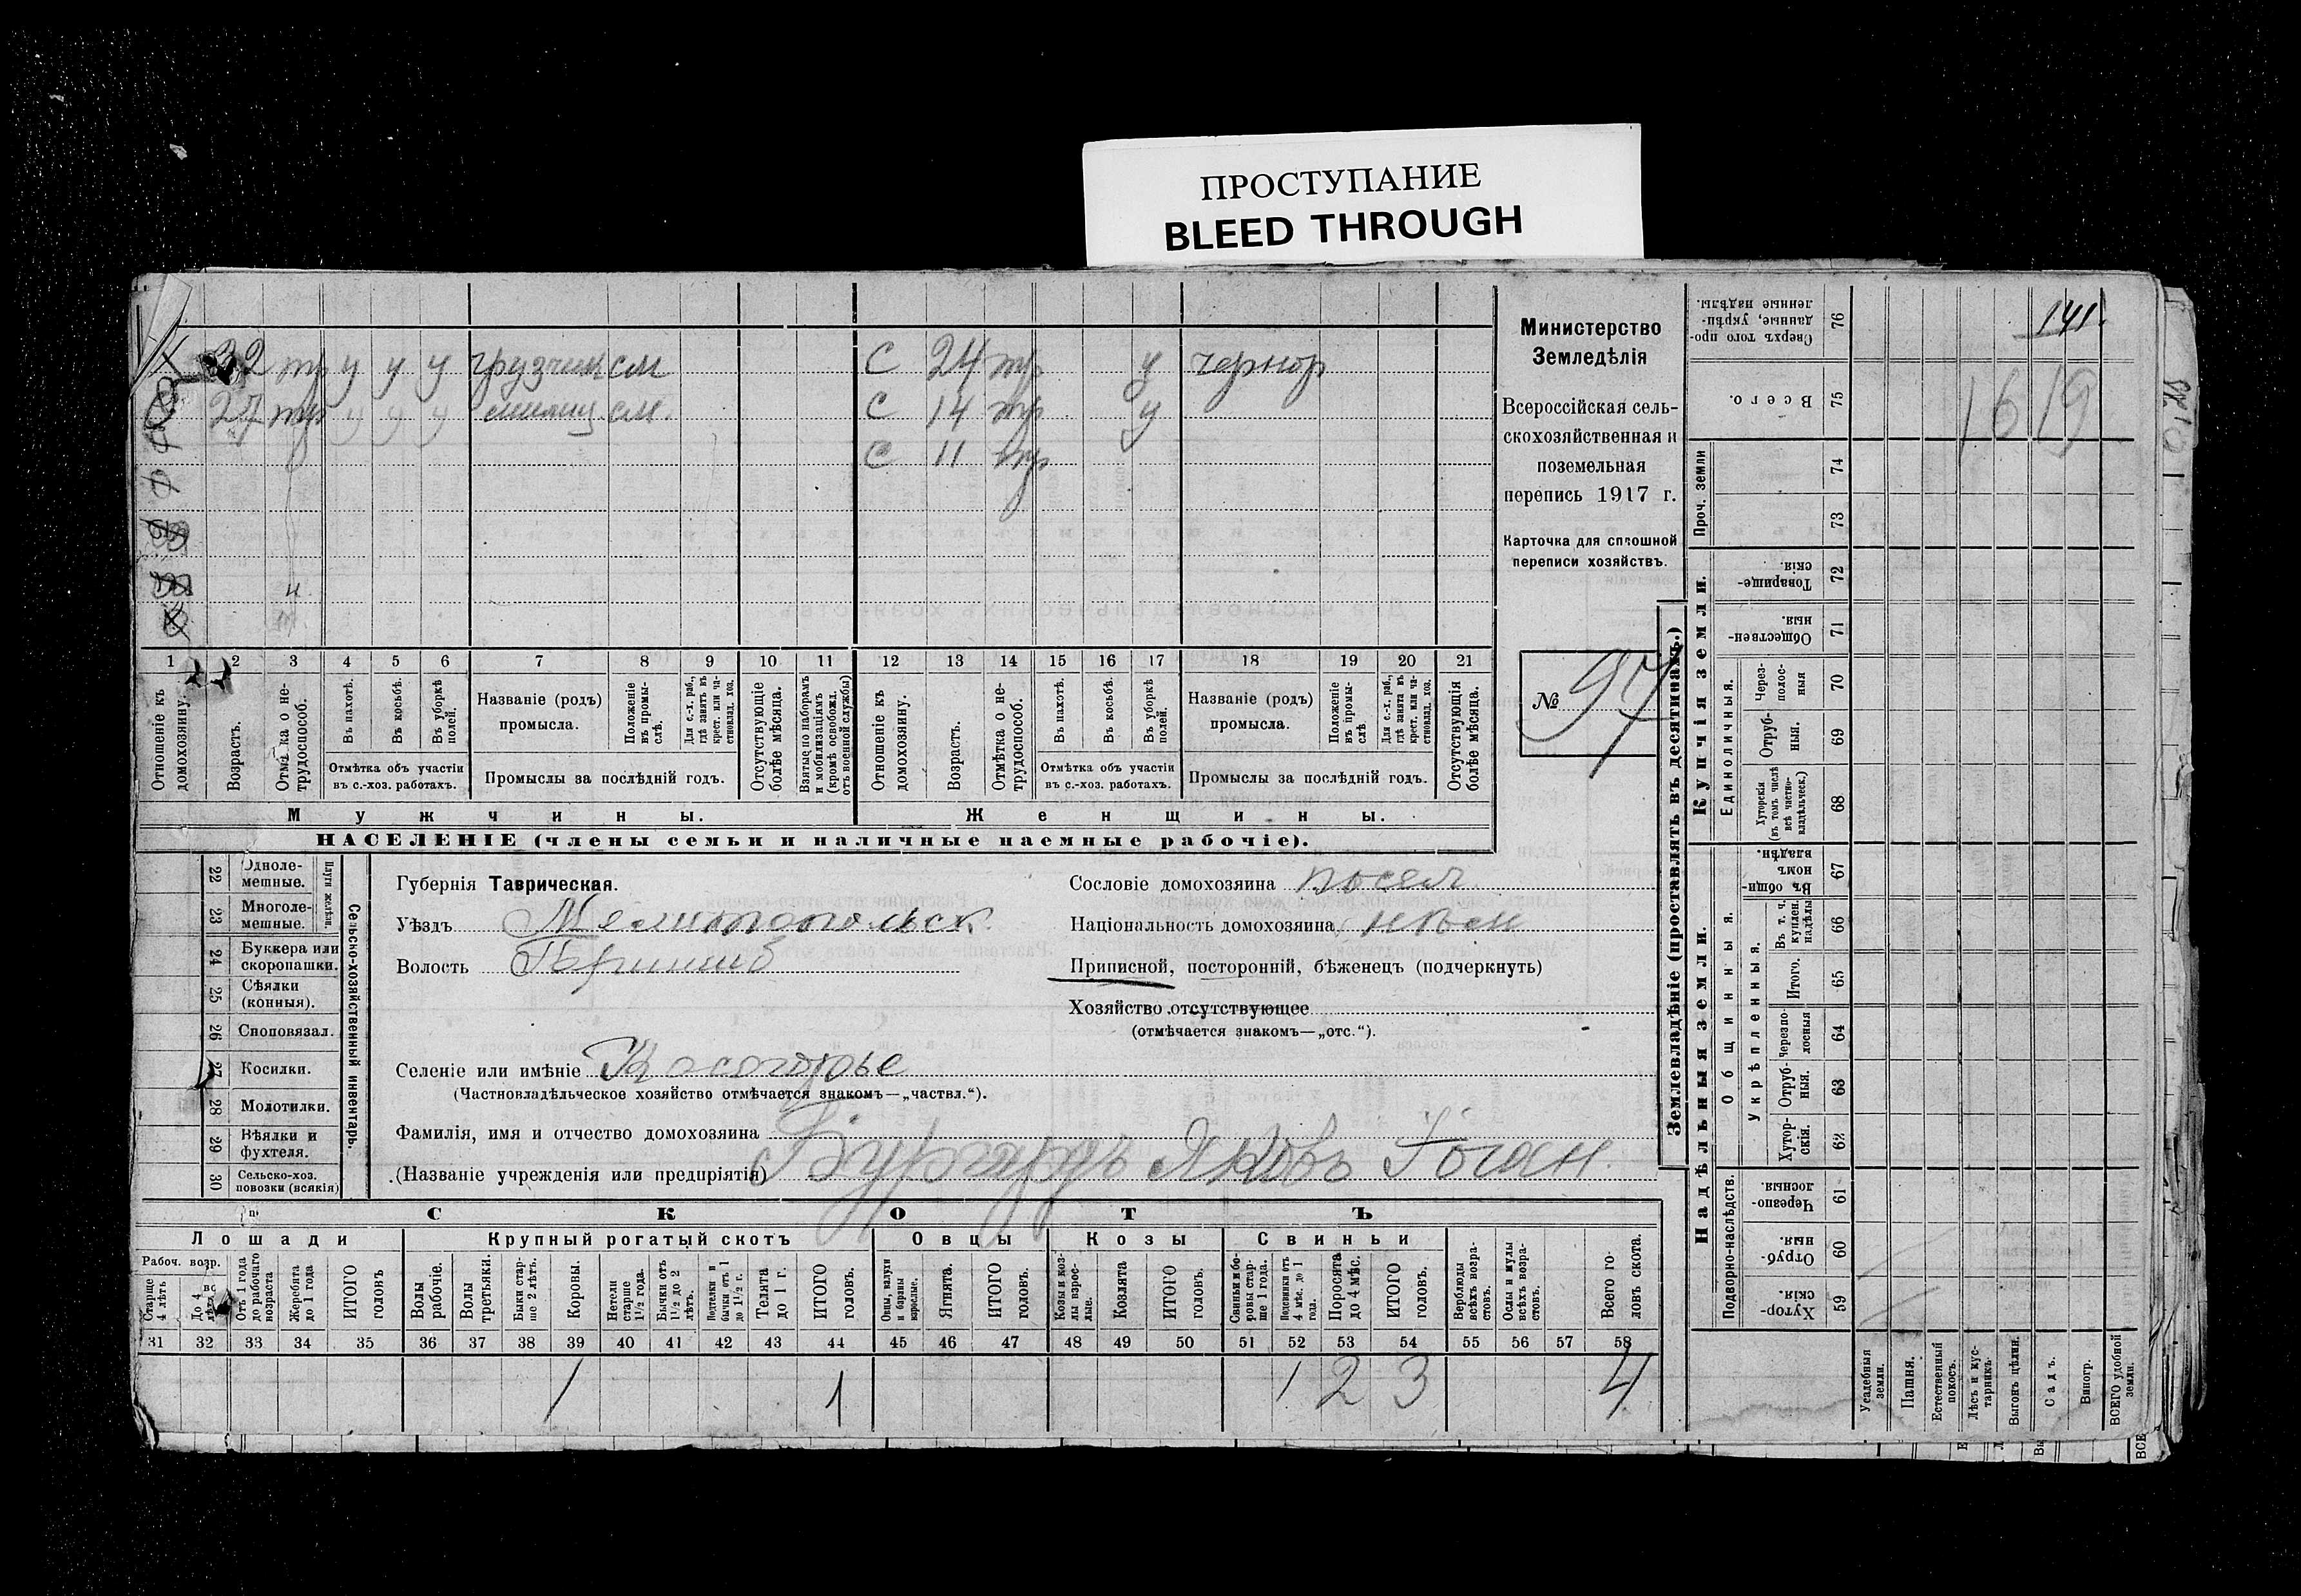 ПРОСТУПАНИЕ
BLEED THROUGH
141.
32 тр у у у грузчик см
С 24 тр у чернор
27 тр у у у см.
С 14 тр у
С 11 тр
1 2 3 4 5 6 7 8 9 10 11 12 13 14 15 16 17 18 19 20 21
Отношеніе къ домохозяину.
Возрастъ.
Отмѣтка о не-трудоспособ.
Въ пахотѣ.
Въ косьбѣ.
Въ уборкѣ полей.
Отмѣтка объ участіи въ с.-хоз. работахъ.
Названіе (родъ) промысла.
Положеніе въ промы-слѣ.
Для с.-х. раб., гдѣ занятъ въ крест. или ча-стновлад. хоз.
Промыслы за послѣдній годъ.
Отсутствующіе болѣе мѣсяца.
Взятые по наборамъ и мобилизаціямъ (кромѣ освобожд. отъ военной службы)
Отношеніе къ домохозяину.
Возрастъ.
Отмѣтка о не-трудоспособ.
Въ пахотѣ.
Въ косьбѣ.
Въ уборкѣ полей.
Отмѣтка объ участіи въ с.-хоз. работахъ.
Названіе (родъ) промысла.
Положеніе въ промы-слѣ
Для с.-х. раб., гдѣ занята въ крест. или ча-стновлад. хоз.
Промыслы за послѣдній годъ.
Отсутствующія болѣе мѣсяца.
Мужчины.
Женщины.
НАСЕЛЕНІЕ (члены семьи и наличные наемные рабочіе).
Министерство
Земледѣлія
Всероссійская сель-
скохозяйственная и
поземельная
перепись 1917 г.
Карточка для сплошной
переписи хозяйствъ.
№ 97
22 Одноле-мешные.
23 Многоле-мешные.
Плуги желѣзн.
24 Буккера или скоропашки.
25 Сѣялки (конныя).
26 Сноповязал.
27 Косилки.
28 Молотилки.
29 Вѣялки и фухтеля.
30 Сельско-хоз. повозки (всякія)
Сельско-хозяйственный инвентарь.
Губернія Таврическая.
Уѣздъ Мелитопольск.
Волость Пришиб
Селеніе или имѣніе Косогорье
(Частновладѣльческое хозяйство отмѣчается знакомъ—„частвл.“).
Фамилія, имя и отчество домохозяина
(Названіе учрежденія или предпріятія) Бургардъ Яковъ Іоган.
Сословіе домохозяина посел.
Національность домохозяина нѣм
Приписной, посторонній, бѣженецъ (подчеркнуть)
Хозяйство отсутствующее
(отмѣчается знакомъ—„отс.“).
СКОТЪ
Лошади
Крупный рогатый скотъ
Овцы
Козы
Свиньи
Рабоч. возр.
Старше 4 лѣтъ
До 4 лѣтъ
Отъ 1 года до рабочаго возраста
Жеребята до 1 года
ИТОГО головъ
Волы рабочіе.
Волы третьяки.
Быки стар-ше 2 лѣтъ.
Коровы.
Нетели старше 1½ года.
Бычки отъ 1½ до 2 лѣтъ.
Подтелки и бычки отъ 1 до 1½ г.
Телята до 1 г.
ИТОГО головъ.
Овцы, валухи и бараны взрослые.
Ягнята.
ИТОГО головъ.
Козы и коз-лы взрос-лые.
Козлята
ИТОГО головъ.
Свиньи и бо-ровы стар-ше 1 года.
Подсвинки отъ 4 мѣс. до 1 года.
Поросята до 4 мѣс.
ИТОГО головъ.
Верблюды всѣхъ возра-стовъ.
Ослы и мулы всѣхъ возра-стовъ.
Всего го-ловъ скота.
31 32 33 34 35 36 37 38 39 40 41 42 43 44 45 46 47 48 49 50 51 52 53 54 55 56 57 58
1 1 1 2 3 4
Землевладѣніе (проставлять въ десятинахъ.)
Надѣльныя земли.
Купчія земли.
Проч. земли
Подворно-наслѣдств.
Общинныя.
Укрѣпленныя.
Единоличныя.
Хутор-скія. 59
Отруб-ныя. 60
Черезпо-лосныя. 61
Хутор-скія. 62
Отруб-ныя. 63
Черезпо-лосныя 64
Итого. 65
Въ т. ч. куплен. надѣлы 66
Въ общи-номъ владѣн. 67
Хуторскія (въ томъ числѣ всѣ частно-владѣльческ.) 68
Отруб-ныя. 69
Через-полос-ныя 70
Обществен-ныя. 71
Товарище-скія. 72
73
74
Всего. 75
Сверхъ того про-данные, укрѣп-ленные надѣлы. 76
1619
Усадебныя земли.
Пашня.
Естественный покосъ.
Лѣсъ и кус-тарникъ.
Выгонъ цѣлин.
Садъ.
Виногр.
ВСЕГО удобной земли.